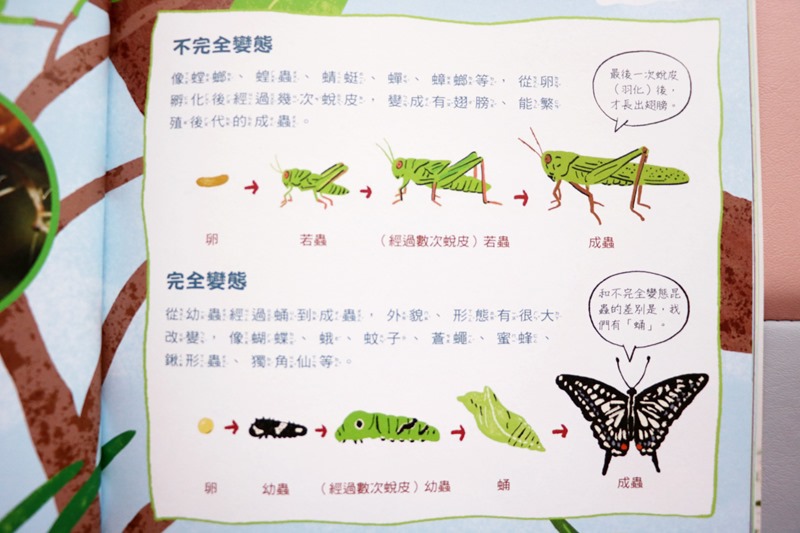 不完全變態
像螳螂、蝗蟲、蜻蜓、蟬、蟑螂等，從卵
孵化後經過幾次蛻皮，變成有翅膀、能繁
殖後代的成蟲。
最後一次蛻皮
（羽化）後，
才長出翅膀。
卵
若蟲
（經過數次蛻皮）若蟲
成蟲
完全變態
從幼蟲經過蛹到成蟲，外貌、形態有很大
改變，像蝴蝶、蛾、蚊子、蒼蠅、蜜蜂、
鍬形蟲、獨角仙等。
和不完全變態昆
蟲的差別是，我
們有「蛹」。
卵
幼蟲
（經過數次蛻皮）幼蟲
蛹
成蟲